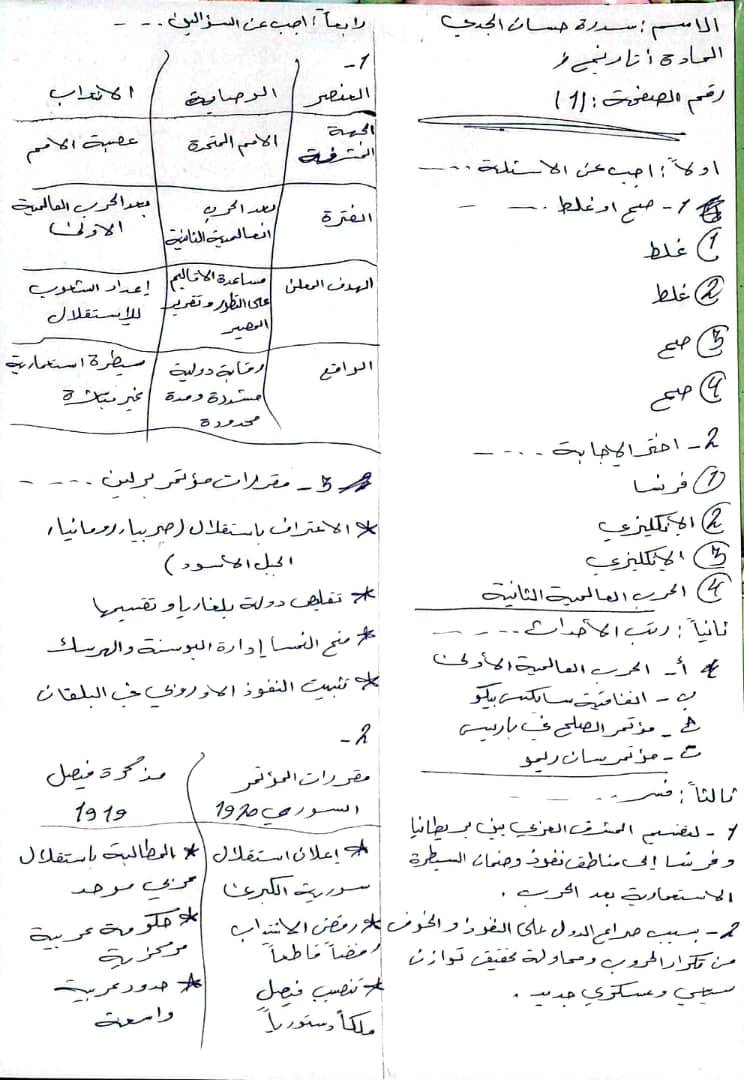 الاسم: سدرة حسان الجدي
المادة: تاريخ
رقم الصفحة: (1)
اولاً: اجب عن الاسئلة ....
1- صح او غلط ....
1 غلط
2 غلط
3 صح
4 صح
2- اختر الإجابة ....
1 فرنسا
2 الإنكليزي
3 الإنكليزي
4 الحرب العالمية الثانية
ثانياً: رتب الأحداث ....
أ- الحرب العالمية الأولى
ب- اتفاقية سايكس بيكو
ج- مؤتمر الصلح في باريس
ت- مؤتمر سان ريمو
ثالثاً: فسر ....
1- لتقسيم المشرق العربي بين بريطانيا
وفرنسا إلى مناطق نفوذ وضمان السيطرة
الاستعمارية بعد الحرب.
2- بسبب صراع الدول على النفوذ والخوف
من تكرار الحروب ومحاولة تحقيق توازن
سياسي وعسكري جديد.
رابعاً: اجب عن السؤالين ....
1-
العنصر الوصاية الانتداب
الجهة المشرفة الامم المتحدة عصبة الامم
الفترة بعد الحرب العالمية الثانية بعد الحرب العالمية الاولى
الهدف المعلن مساعدة الاقاليم على التطور وتقرير المصير إعداد الشعوب للإستقلال
الواقع رقابة دولية مشددة ومدة محدودة سيطرة استعمارية غير مباشرة
3- مقررات مؤتمر برلين ....
* الاعتراف باستقلال (صربيا، رومانيا،
الجبل الأسود)
* تقليص دولة بلغاريا وتقسيمها
* منح النمسا إدارة البوسنة والهرسك
* تثبيت النفوذ الاوروبي في البلقان
2-
مقررات المؤتمر السوري 1920 مذكرة فيصل 1919
* إعلان استقلال سورية الكبرى * المطالبة باستقلال عربي موحد
* رفض الانتداب رفضاً قاطعاً * حكومة عربية مركزية
* تنصب فيصل ملكاً دستورياً * حدود عربية واسعة